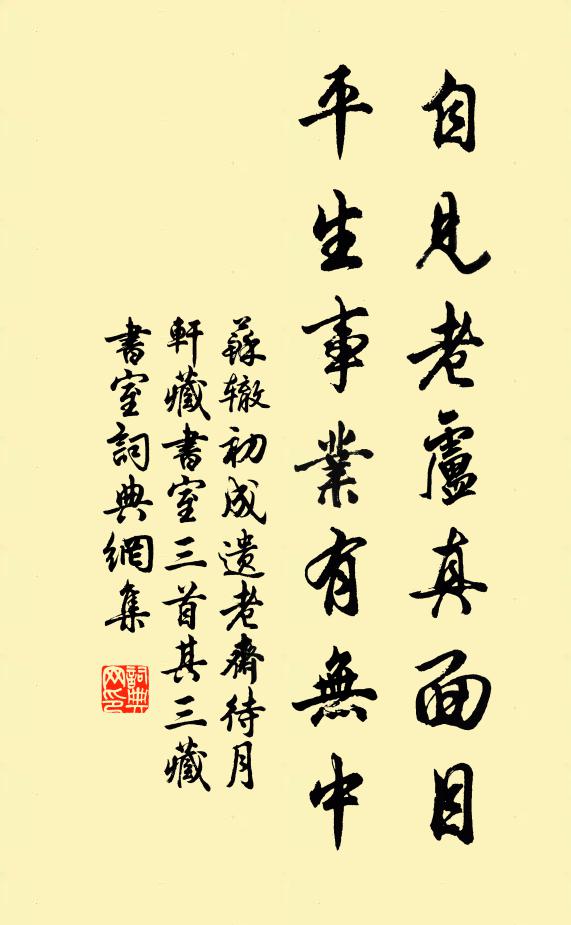 自見老盧真面目
平生事業有無中
蘇辙初成遺老齋待月
軒藏書室三首其三藏
書室詞典網集
詞典
网印